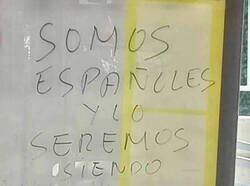 SOMOS
ESPAÑOLES
Y LO
SEREMOS
SIENDO